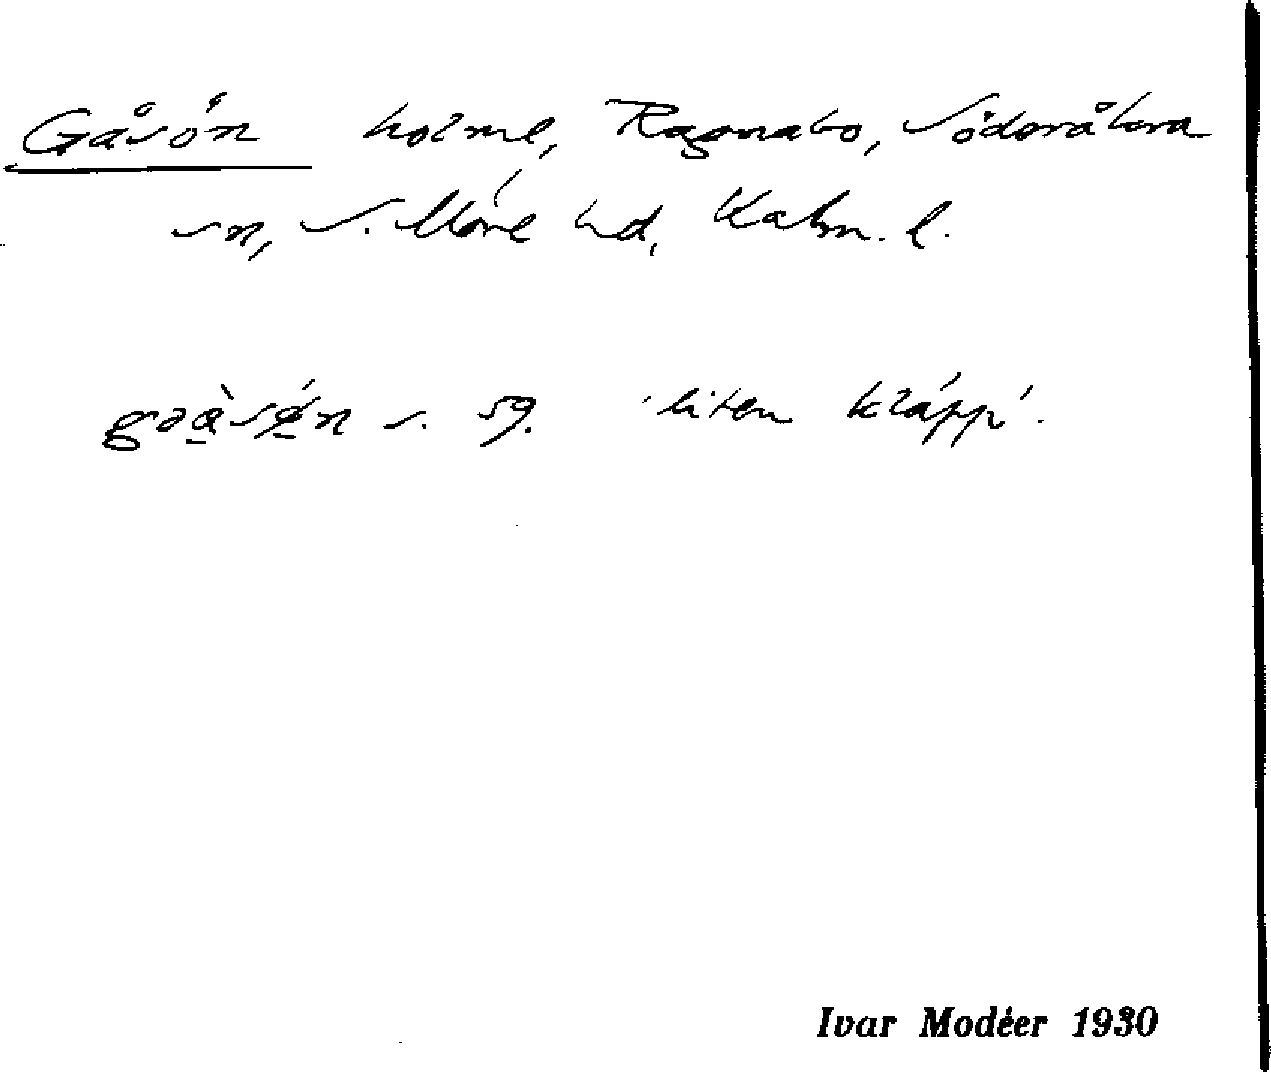 Gåsön holme, Ragnabo, Söderåkra
sn, S. Möre hd, Kalm. l.
s. 59. 'liten kläpp'.
Ivar Modéer 1930